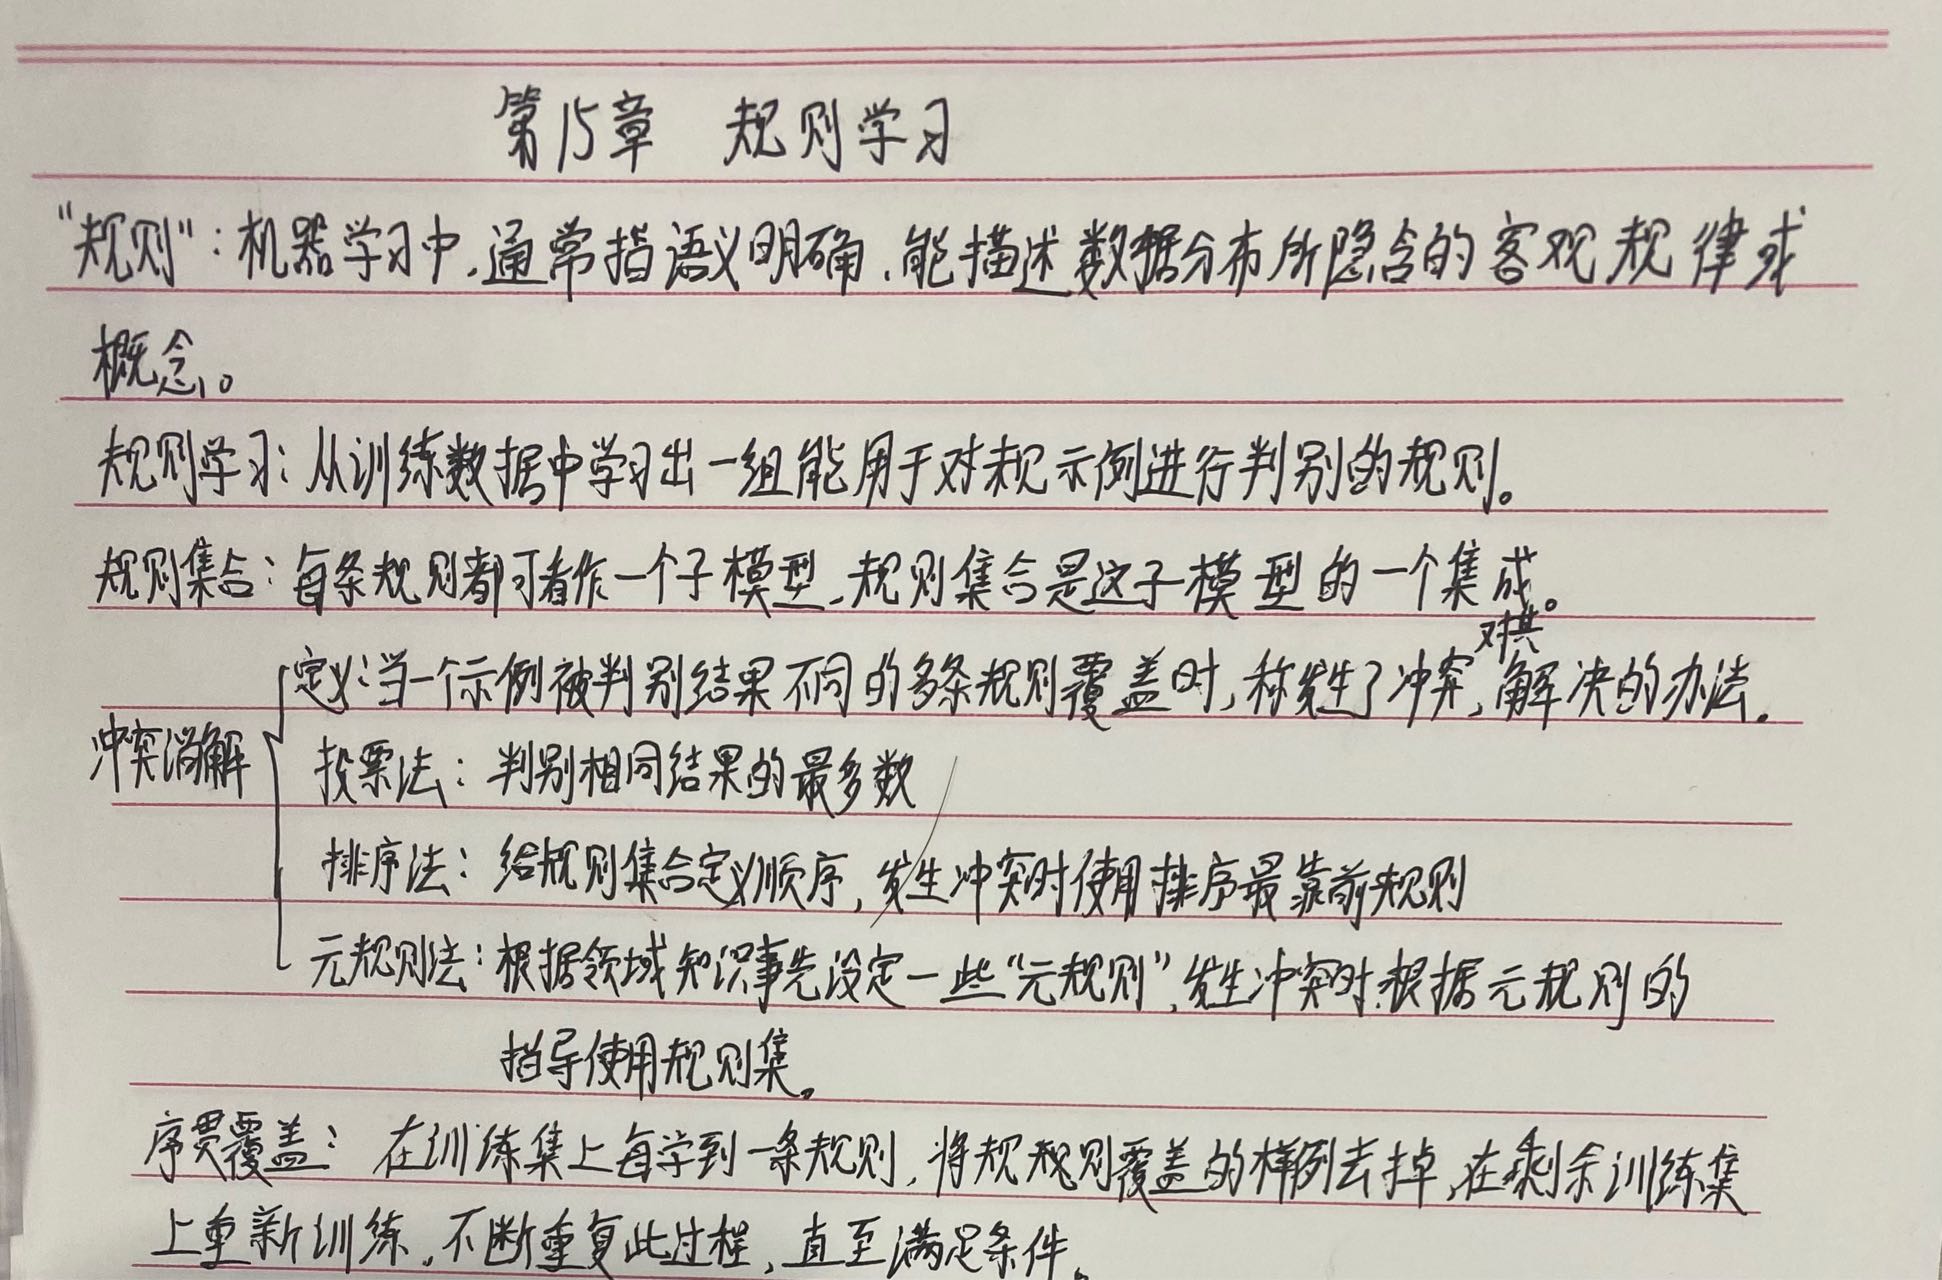 第15章 规则学习
“规则”：机器学习中，通常指语义明确、能描述数据分布所隐含的客观规律或
概念。
规则学习：从训练数据中学习出一组能用于对未见示例进行判别的规则。
规则集合：每条规则都可看作一个子模型，规则集合是这子模型的一个集成。
对其
定义：当一个示例被判别结果不同的多条规则覆盖时，称发生了冲突，解决的办法。
冲突消解
投票法：判别相同结果的最多数
排序法：给规则集合定义顺序，发生冲突时使用排序最靠前规则
元规则法：根据领域知识事先设定一些“元规则”，发生冲突时，根据元规则的
指导使用规则集。
序贯覆盖：在训练集上每学到一条规则，将规规则覆盖的样例去掉，在剩余训练集
上重新训练，不断重复此过程，直至满足条件。